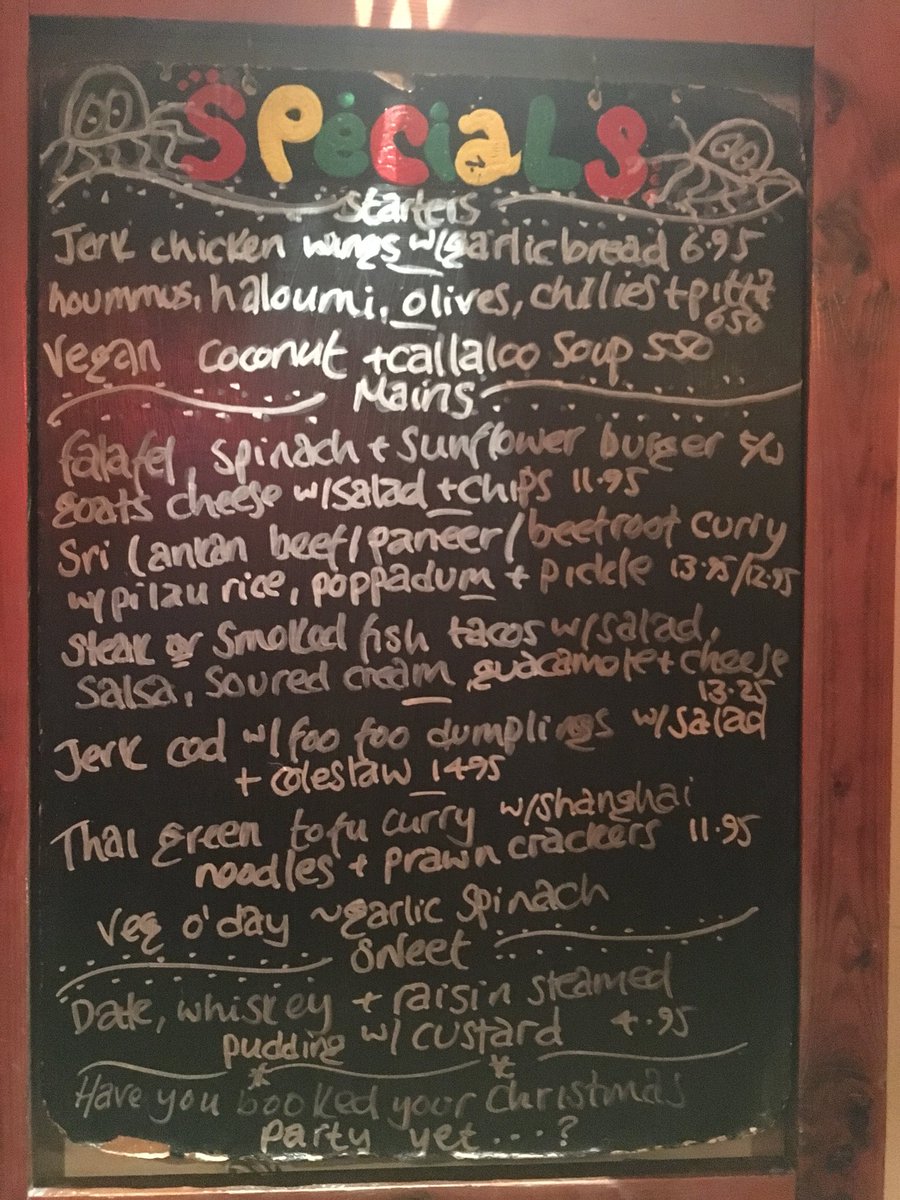 SPéCiALS
Starters
Jerk chicken wings w/garlic bread 6.95
hoummus, haloumi, olives, chillies + pitta
650
Vegan coconut + callaloo Soup 550
Mains
falafel, spinach + sunflower burger
goats cheese w/salad + chips 11.95
Sri Lankan beef/paneer/beetroot curry
w/pilau rice, poppadum + pickle 13.95/12.95
steak or smoked fish tacos w/salad,
salsa, soured cream, guacamole + cheese
13.25
Jerk cod w/ foo foo dumplings w/salad
+ coleslaw 1495
Thai green tofu curry w/shanghai
noodles + prawn crackers 11.95
Veg o'day ~ garlic spinach
Sweet
Date, whiskey + raisin steamed
pudding w/ custard 4.95
Have you booked your Christmas
Party yet...?